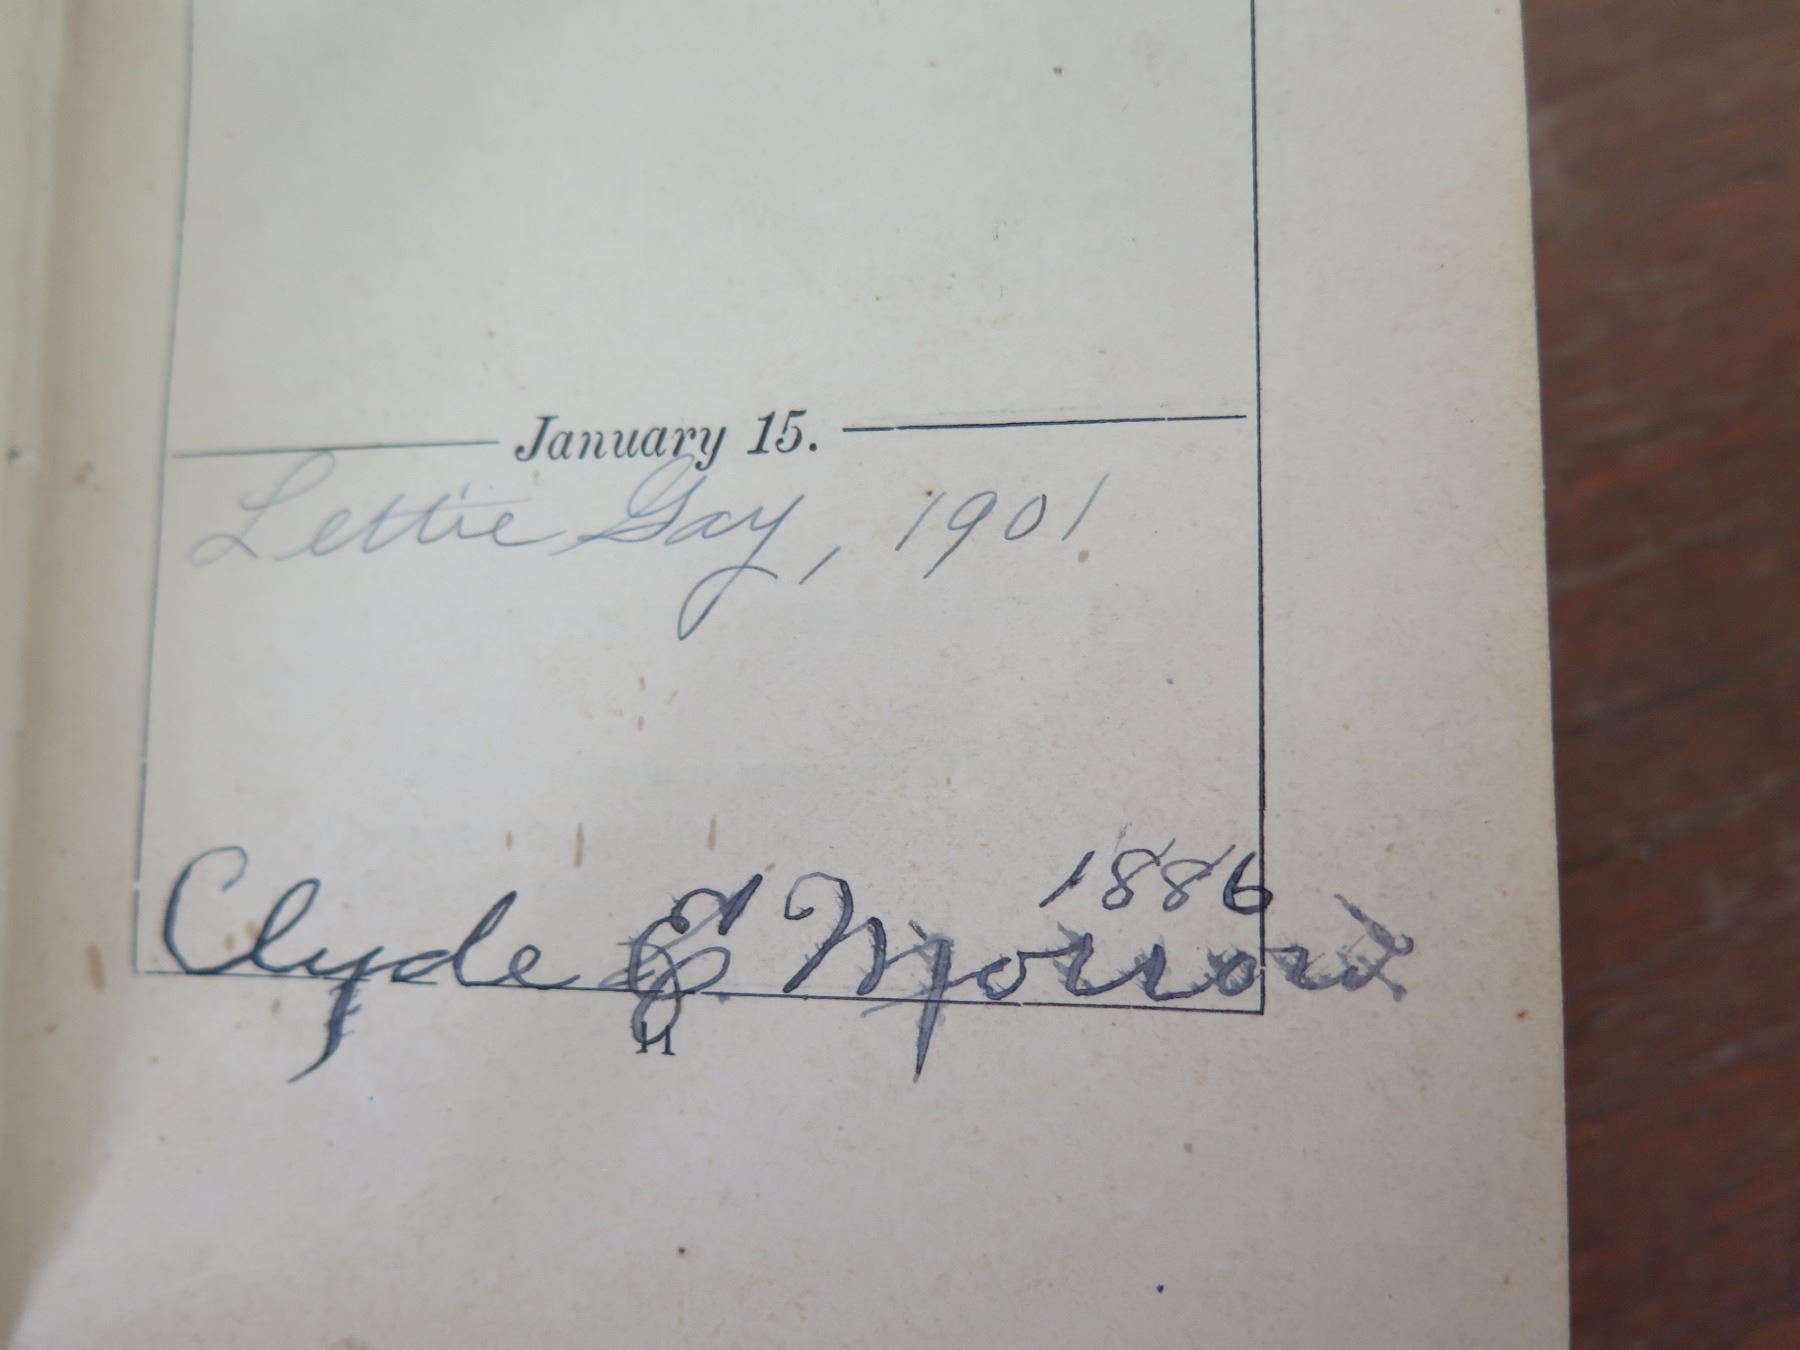 January 15.
Lettie Gay, 1901
1886
Clyde E
11